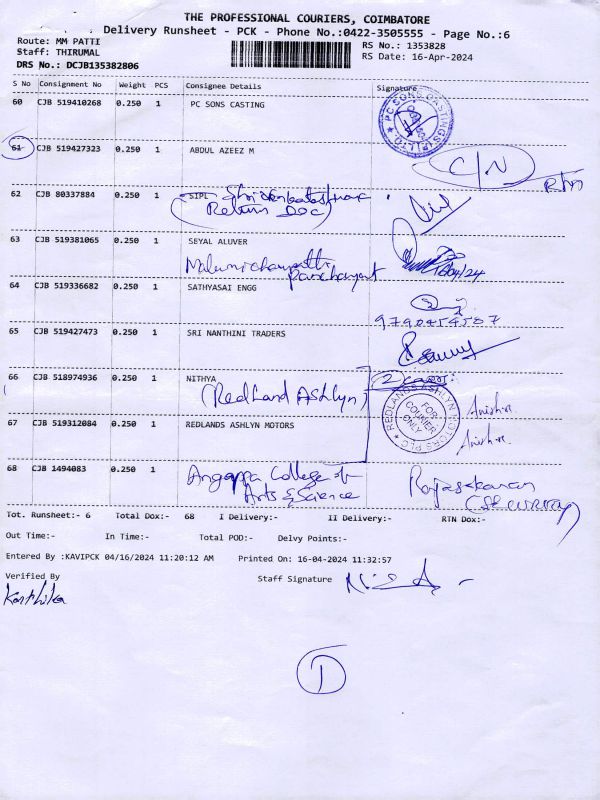 THE PROFESSIONAL COURIERS, COIMBATORE
Delivery Runsheet - PCK - Phone No.:0422-3505555 - Page No.:6
Route: MM PATTI
Staff: THIRUMAL
DRS No.: DCJB135382806
RS No.: 1353828
RS Date: 16-Apr-2024
S No Consignment No Weight PCS Consignee Details Signature
60 CJB 519410268 0.250 1 PC SONS CASTING
61 CJB 519427323 0.250 1 ABDUL AZEEZ M C/N
62 CJB 80337884 0.250 1 SIPL
(Return Doc)
63 CJB 519381065 0.250 1 SEYAL ALUVER
Panchayat
64 CJB 519336682 0.250 1 SATHYASAI ENGG
9790454587
65 CJB 519427473 0.250 1 SRI NANTHINI TRADERS
66 CJB 518974936 0.250 1 NITHYA
(Redland Ashlyn)
REDLANDS ASHLYN MOTORS PLC
FOR COURIER ONLY
67 CJB 519312084 0.250 1 REDLANDS ASHLYN MOTORS
68 CJB 1494083 0.250 1 Angappa College of
Arts & Science
Rajasekaran
Tot. Runsheet:- 6 Total Dox:- 68 I Delivery:- II Delivery:- RTN Dox:-
Out Time:- In Time:- Total POD:- Delvy Points:-
Entered By :KAVIPCK 04/16/2024 11:20:12 AM Printed On: 16-04-2024 11:32:57
Verified By Staff Signature
Karthika
1